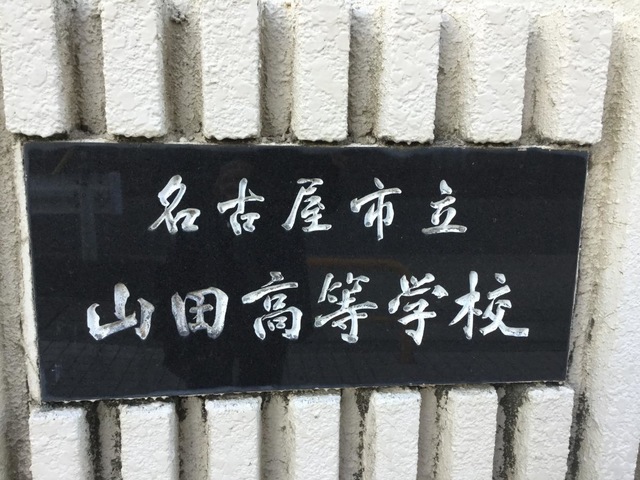 名古屋市立
山田高等学校